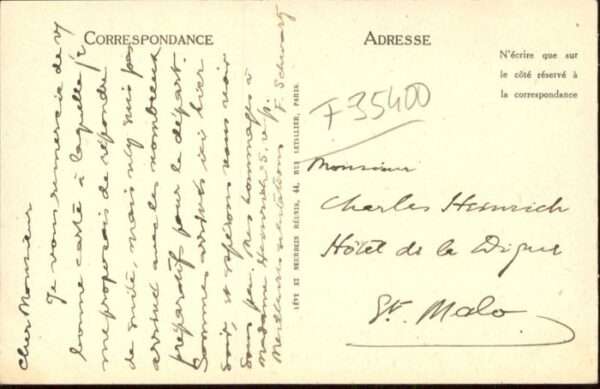 CORRESPONDANCE
Cher Monsieur
Je vous remercie de v/
bonne carte à laquelle je
me proposais de répondre
de suite, mais n'y suis pas
arrivé avec les nombreux
préparatifs pour le départ.
Sommes arrivés ici hier
soir, et espérons vous voir
sous peu. Mes hommages à
Madame Heinrich s.v.p.
Meilleures salutations
F. Schwartz
LÉVY ET NEURDEIN RÉUNIS, 44, RUE LETELLIER, PARIS.
ADRESSE
N'écrire que sur
le côté réservé à
la correspondance
F35400
Monsieur
Charles Heinrich
Hôtel de la Digue
St. Malo.